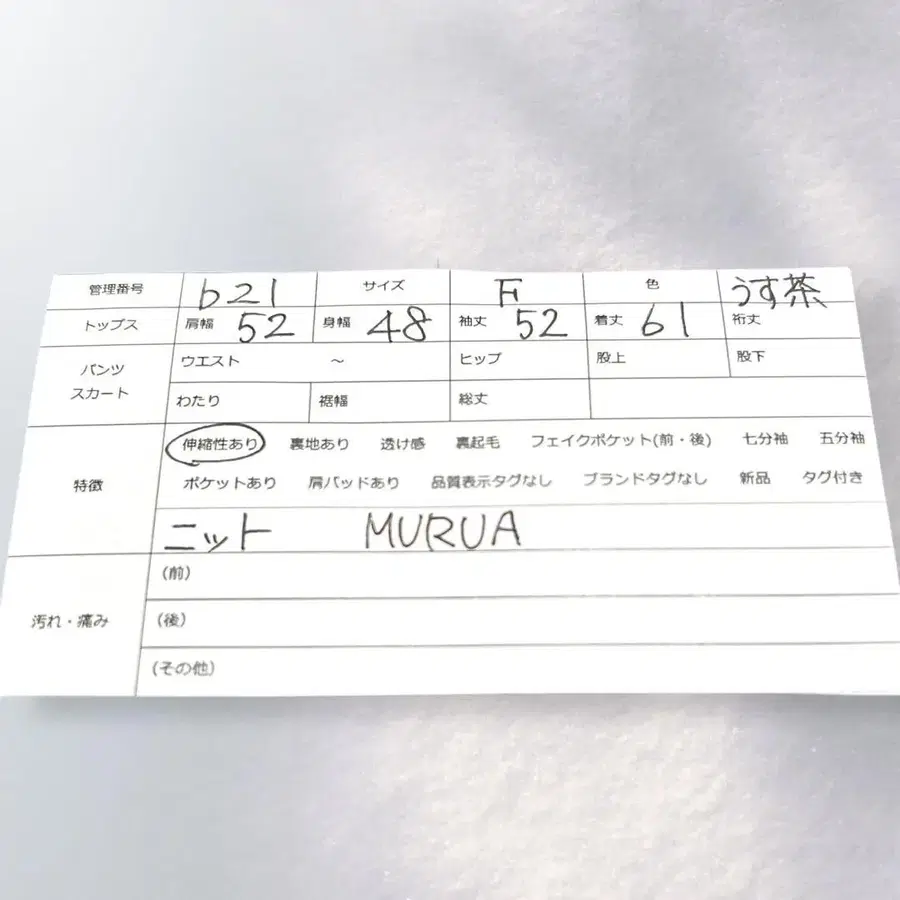 管理番号 b21 サイズ F 色 うす茶
トップス 肩幅 52 身幅 48 袖丈 52 着丈 61 裄丈
パンツ ウエスト ～ ヒップ 股上 股下
スカート わたり 裾幅 総丈
伸縮性あり 裏地あり 透け感 裏起毛 フェイクポケット(前・後) 七分袖 五分袖
特徴 ポケットあり 肩パッドあり 品質表示タグなし ブランドタグなし 新品 タグ付き
ニット MURUA
(前)
汚れ・痛み (後)
(その他)